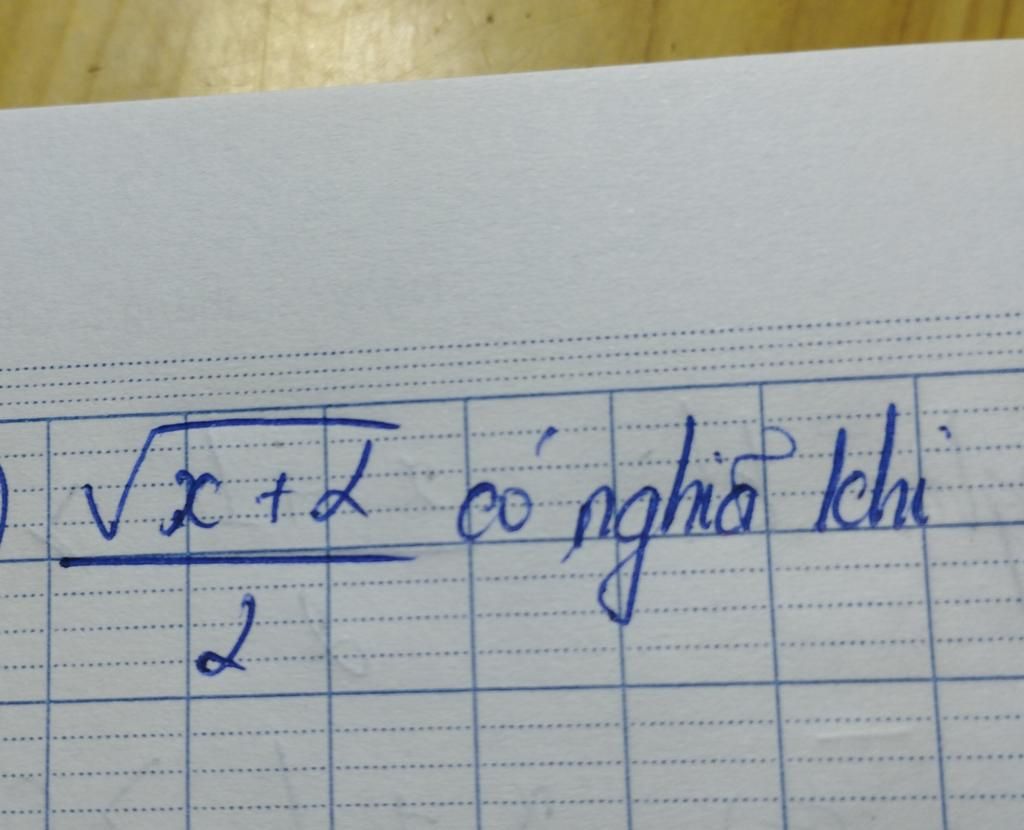 ) √(x + 2) / 2 có nghĩa khi